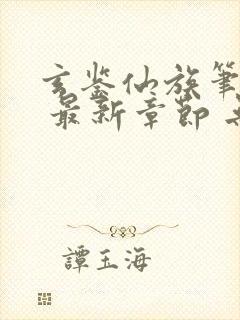 玄鉴仙族筆
最新章節
譚玉海